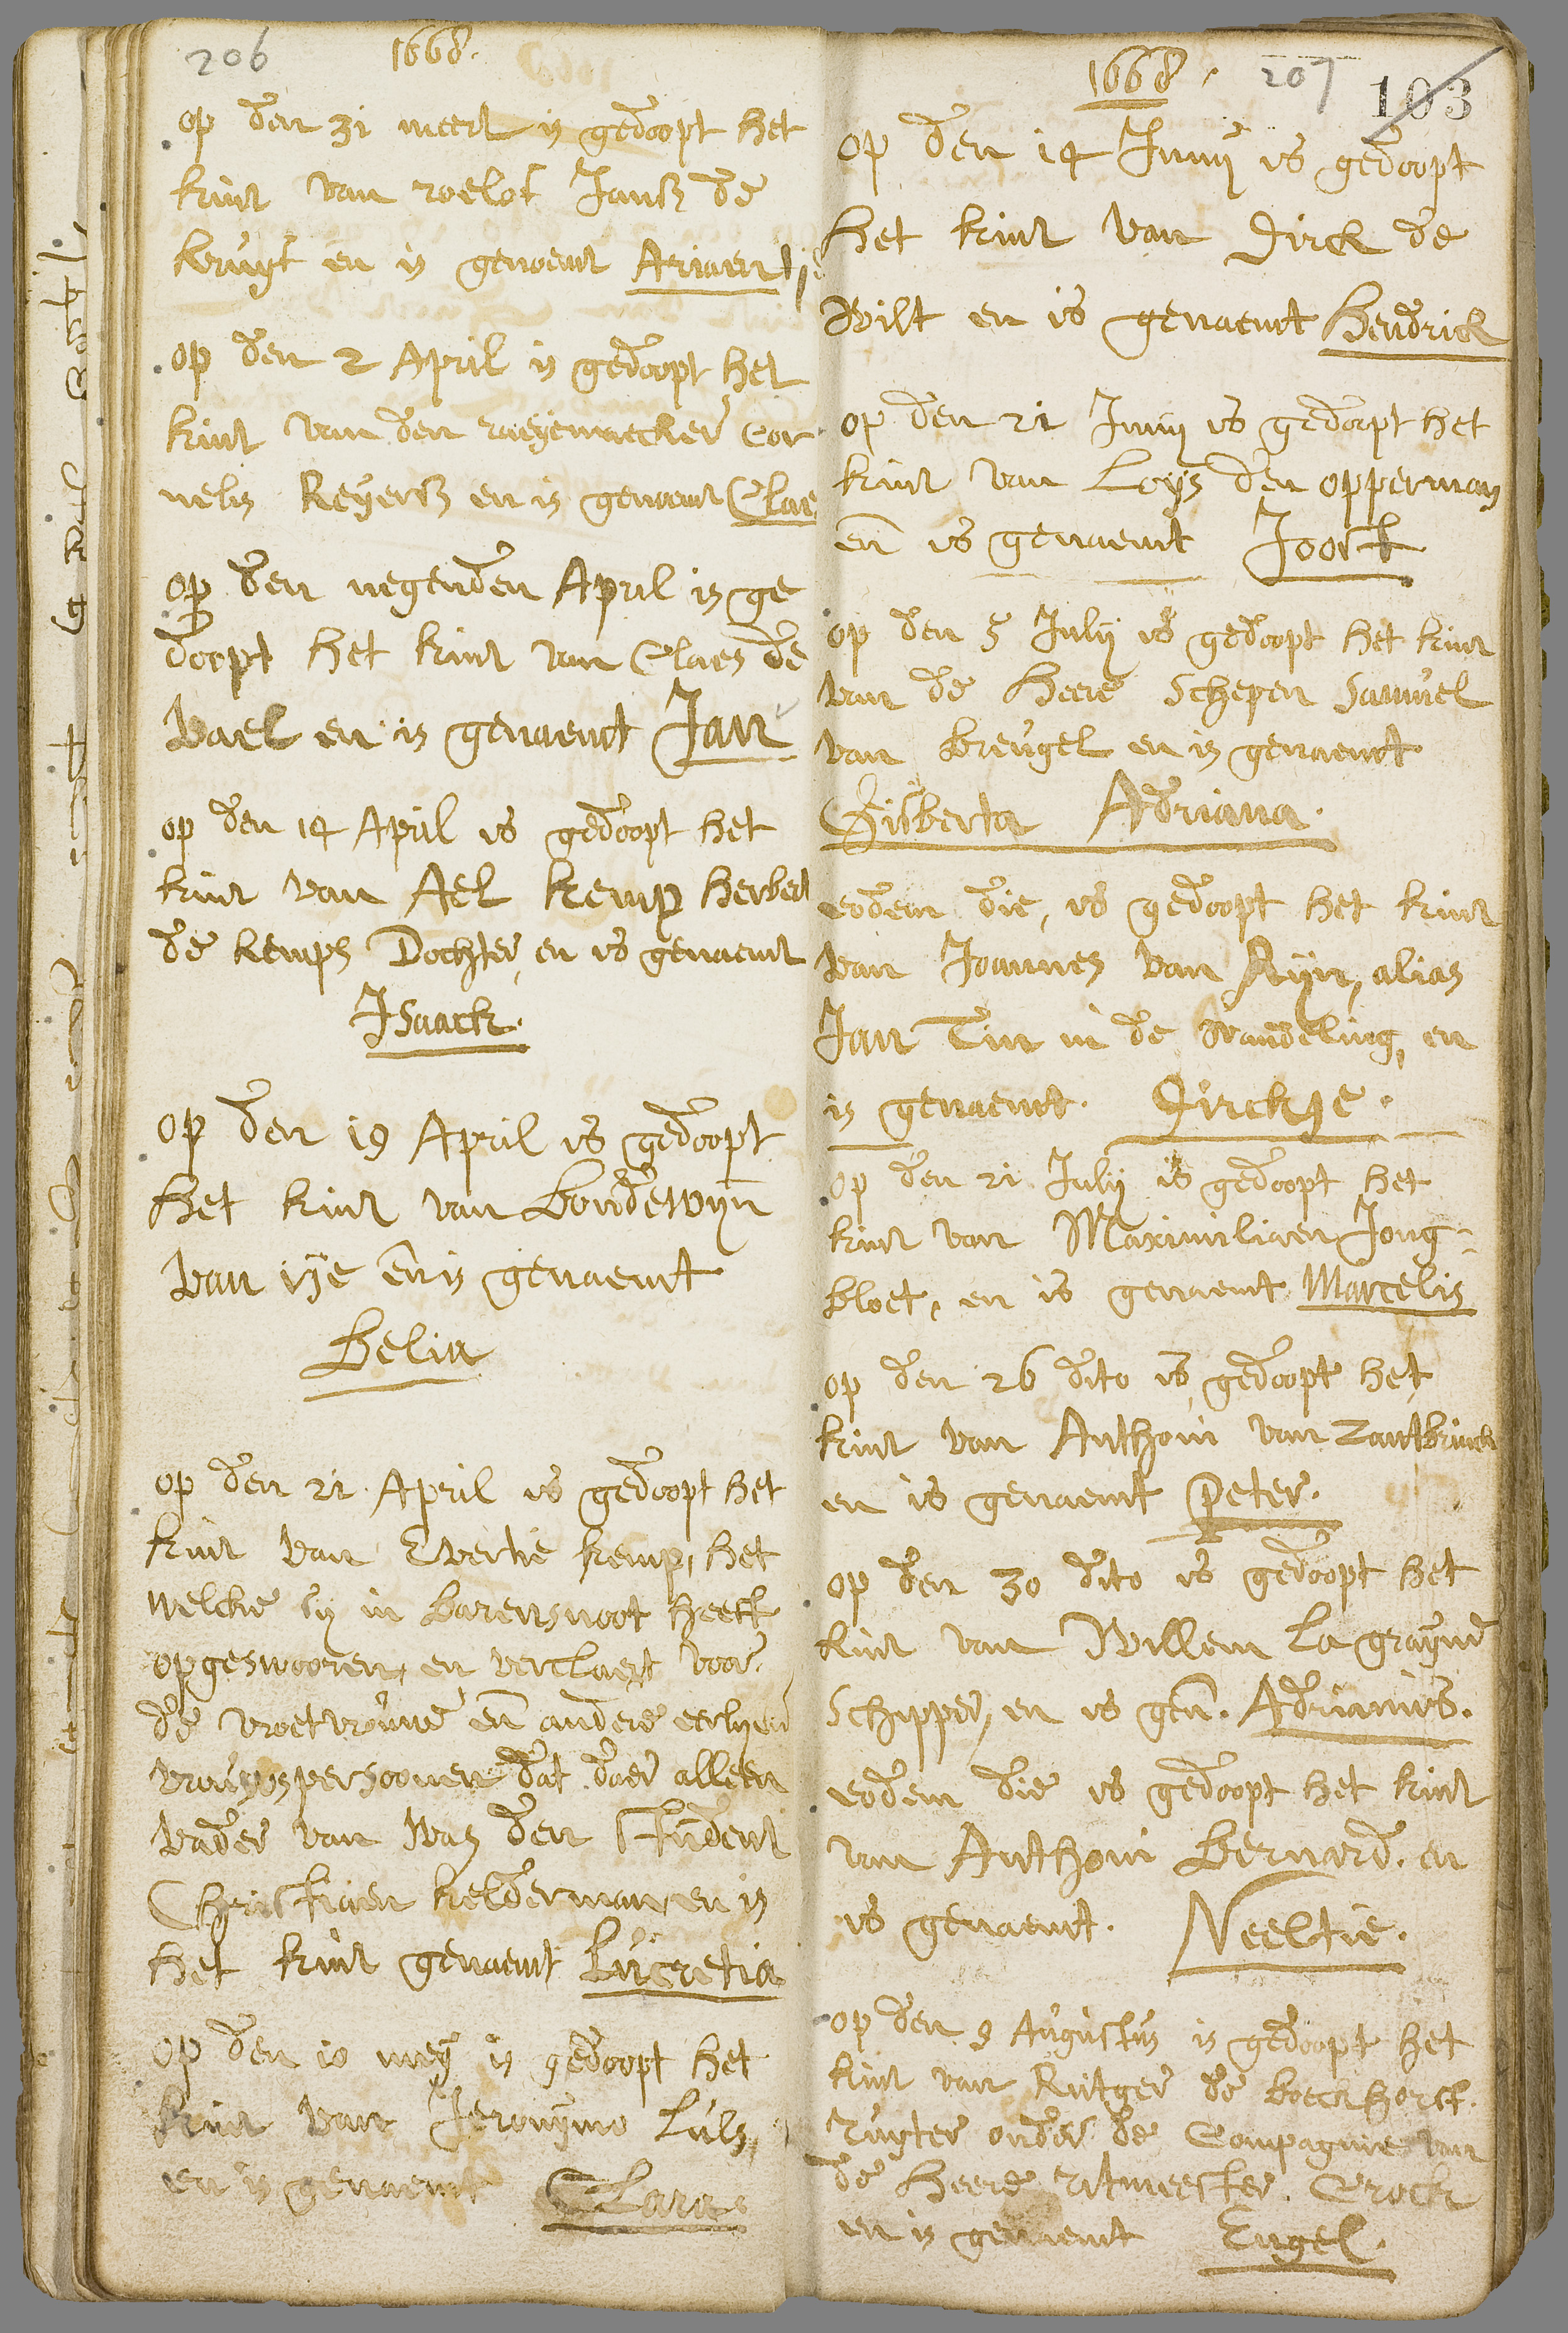 206 1668.
op den 31 meert is gedoopt het
kint van roelof Jansz de
kruyf en is genaemt Ariaentje
op den 2 April is gedoopt het
kint van den raeyemaecker Cor
nelis Reyersz en is genaemt Claes
op den negenden April is ge
doopt het kint van Claes de
Vael en is genaemt Jan
op den 14 April is gedoopt het
kint van Ael Kemp Herbert
de Kemps Dochter, en is genaemt
Isaack.
op den 19 April is gedoopt
het kint van Boudewyn
van iye en is genaemt
Belia
op den 21 April is gedoopt het
kint van Evertie Kemp, het
welcke sy in barensnoot heeft
opgeswooren, en verclaert voor
de vroetvrouwe en andere eerlycke
vrouspersoonen dat daer alleen
Vader van was den student
Christiaen Kelderman en is
het kint genaemt Lucretia
op den 10 mey is gedoopt het
kint van Jeronymo Luls,
en is genaemt Clara.
1668. 207 103
op den 14 Junij is gedoopt
Het kint van Dirck de
Wilt en is genaemt Hendrick
op den 21 Junij is gedoopt het
kint van Loys den opperman
en is genaemt Joost
op den 5 Julij is gedoopt het kint
van de Heere Schepen Samuel
van Breugel en is genaemt
Gisberta Adriana.
eodem die, is gedoopt het kint
van Joannes van Ryn, alias
Jan Tin in de wandeling, en
is genaemt. Dirckje.
op den 21 Julij is gedoopt het
kint van Maximiliaen Jong-
bloet, en is genaemt Marcelis
op den 26 dito is gedoopt het
kint van Anthoni van Zantbrinck
en is genaemt Peter.
op den 30 dito is gedoopt het
kint van Willem La grayne
Schipper, en is gen. Adrianus.
eodem die is gedoopt het kint
van Anthoni Bernard. en
is genaemt. Neeltie.
op den 9 Augustus is gedoopt het
kint van Rutger de boeckhorst.
Ruyter onder de Compagnie van
de Heere ritmeester. Crock
en is genaemt Engel.